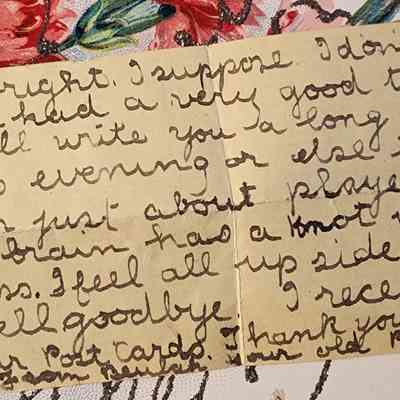 right. I suppose. I don
had a very good t
ll write you a long
evening or else
just about playe
brain has a knot
ss. I feel all up side
ell goodbye. I rece
ur Post Cards. Thank you
From Beulah. Your old